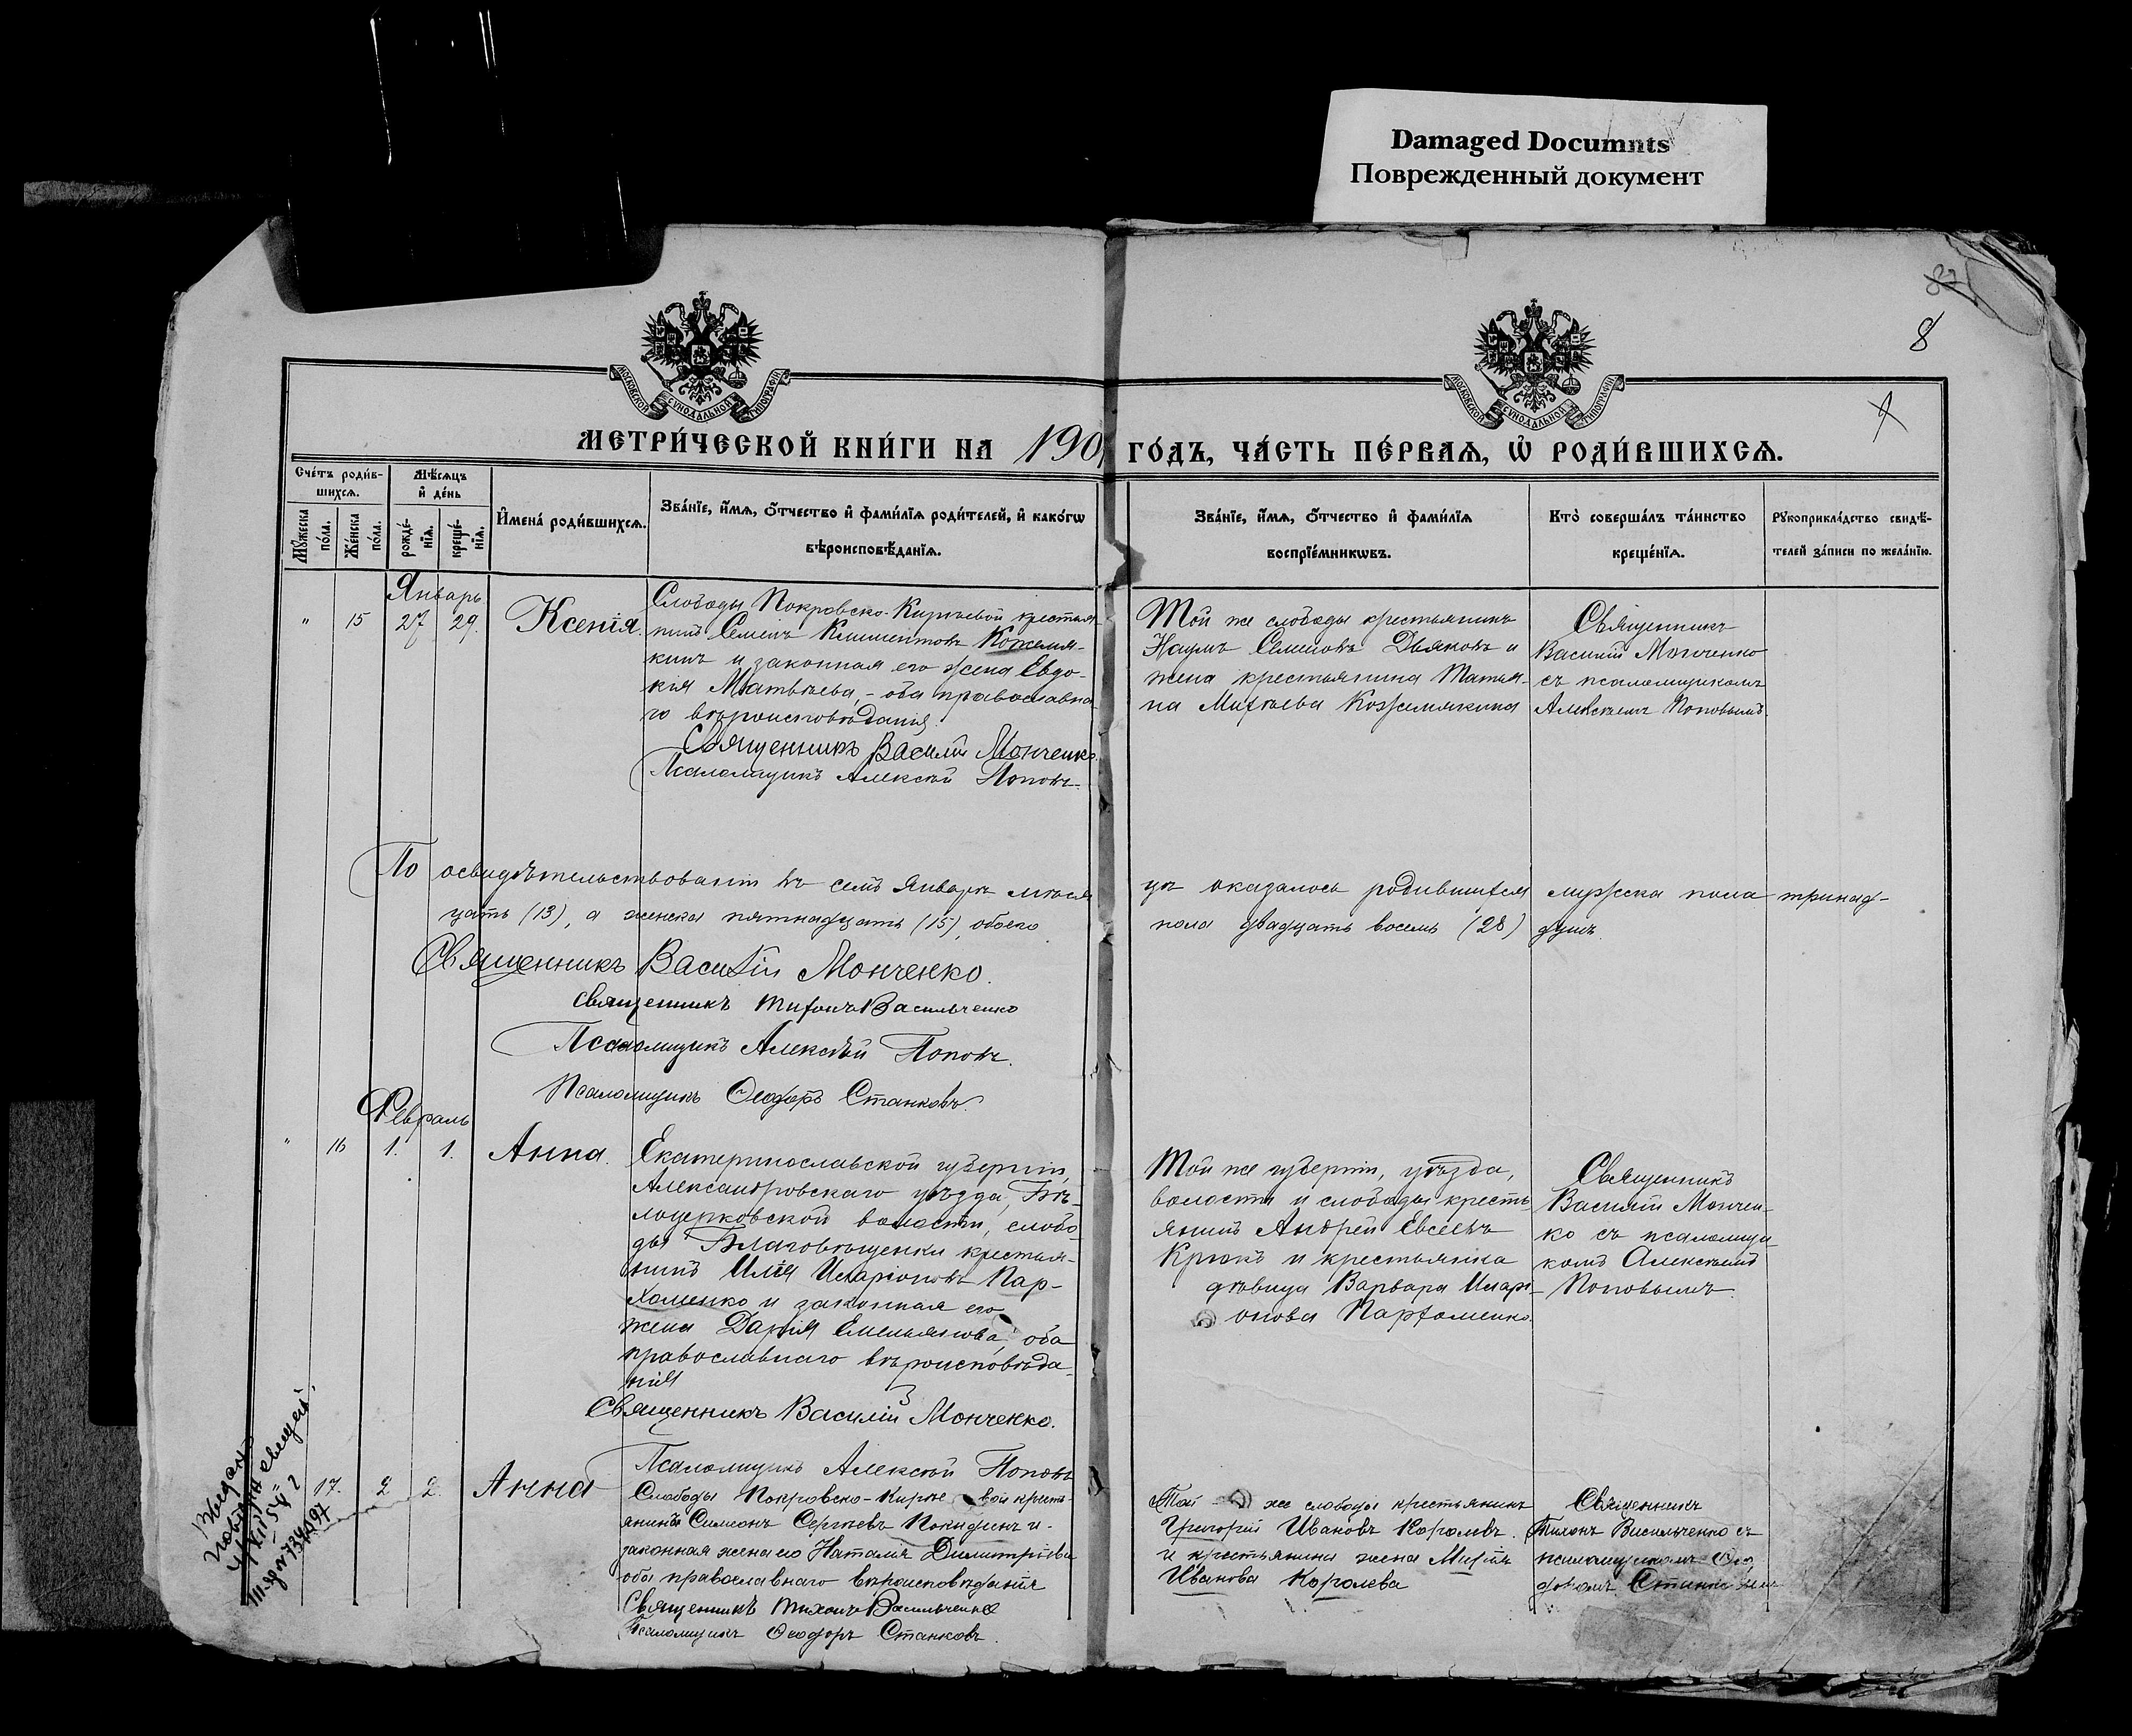 Damaged Documnts
Поврежденный документ
8
МОСКОВСКОЙ СѴНОДАЛЬНОЙ ТИПОГРАФІИ
МОСКОВСКОЙ СѴНОДАЛЬНОЙ ТИПОГРАФІИ
МЕТРИ́ЧЕСКОЙ КНИ́ГИ НА 190 ГО́ДЪ, ЧА́СТЬ ПЕ́РВАѦ, Ѡ҆ РОДИ́ВШИХСѦ.
Сче́тъ роди́в-
шихсѧ.
Мꙋ́жеска по́ла.
Же́нска по́ла.
Мѣ́сѧцъ
и҆ де́нь
рожде́-нїѧ.
креще́-нїѧ.
И҆мена̀ роди́вшихсѧ.
Зва́нїе, и҆́мѧ, о҆́тчество и҆ фами́лїѧ роди́телей, и҆ како́гѡ
вѣроисповѣ́данїѧ.
Зва́нїе, и҆́мѧ, о҆́тчество и҆ фами́лїѧ
воспрїе́мникѡвъ.
Кто̀ соверша́лъ та́инство
креще́нїѧ.
Рꙋкоприкла́дство свидѣ́-
телей за́писи по жела́нїю.
Январь
" 15 27 29. Ксенія.
Слободы Покровско-Киреевой крестья
нинъ Семенъ Климентовъ Кожемя-
кинъ и законная его жена Евдо-
кія Матвѣева, - оба православна
го вѣроисповѣданія.
Священникъ Василій Монченко.
Псаломщикъ Алексѣй Поповъ.
Той же слободы крестьянинъ
Наумъ Семеновъ Дьяковъ и
жена крестьянина Татья-
на Михеева Кожемякина
Священникъ
Василій Мончен
съ псаломщикомъ
Алексѣемъ Поповымъ.
По освидѣтельствованіи въ семъ Январѣ мѣся цѣ оказалось родившихся мужеска пола тринад-
цать (13), а женска пятнадцать (15), обоего пола двадцать восемь (28) душъ.
Священникъ Василій Мончено.
Священникъ Тихонъ Васильченко
Псаломщикъ Алексѣй Поповъ.
Псаломщикъ Ѳеодоръ Станковъ.
Февраль
" 16 1. 1. Анна.
Екатеринославской губерніи,
Александровскаго уѣзда, Бѣ-
лоцерковской волости, слобо
ды Благовѣщенки крестья-
нинъ Илія Иларіоновъ Пар-
хоменко и законная его
жена Дарія Емельянова, оба
православнаго вѣроисповѣда-
нія
Священникъ Василій Мончено.
Псаломщикъ Алексѣй Поповъ
Той же губерніи, уѣзда,
волости и слободы кресть
янинъ Андрей Евсеевъ
Крюкъ и крестьянка
дѣвица Варвара Илари-
онова Пархоменко.
Священникъ
Василій Мончен-
ко съ псаломщи-
комъ Алексѣемъ
Поповымъ.
17. 2 2. Анна
Слободы Покровско-Кирѣевой кресть-
янинъ Симеонъ Сергѣевъ и
законная жена его Наталія Димитріева
оба православнаго вѣроисповѣданія
Священникъ Тихонъ Васильченко
Псаломщикъ Ѳеодоръ Станковъ.
Той же слободы крестьянинъ
Григорій Ивановъ Королевъ.
и крестьянина жена Марія
Иванова Королева
Священникъ
Тихонъ Васильченко съ
псаломщикомъ Ѳео
доромъ Станковымъ